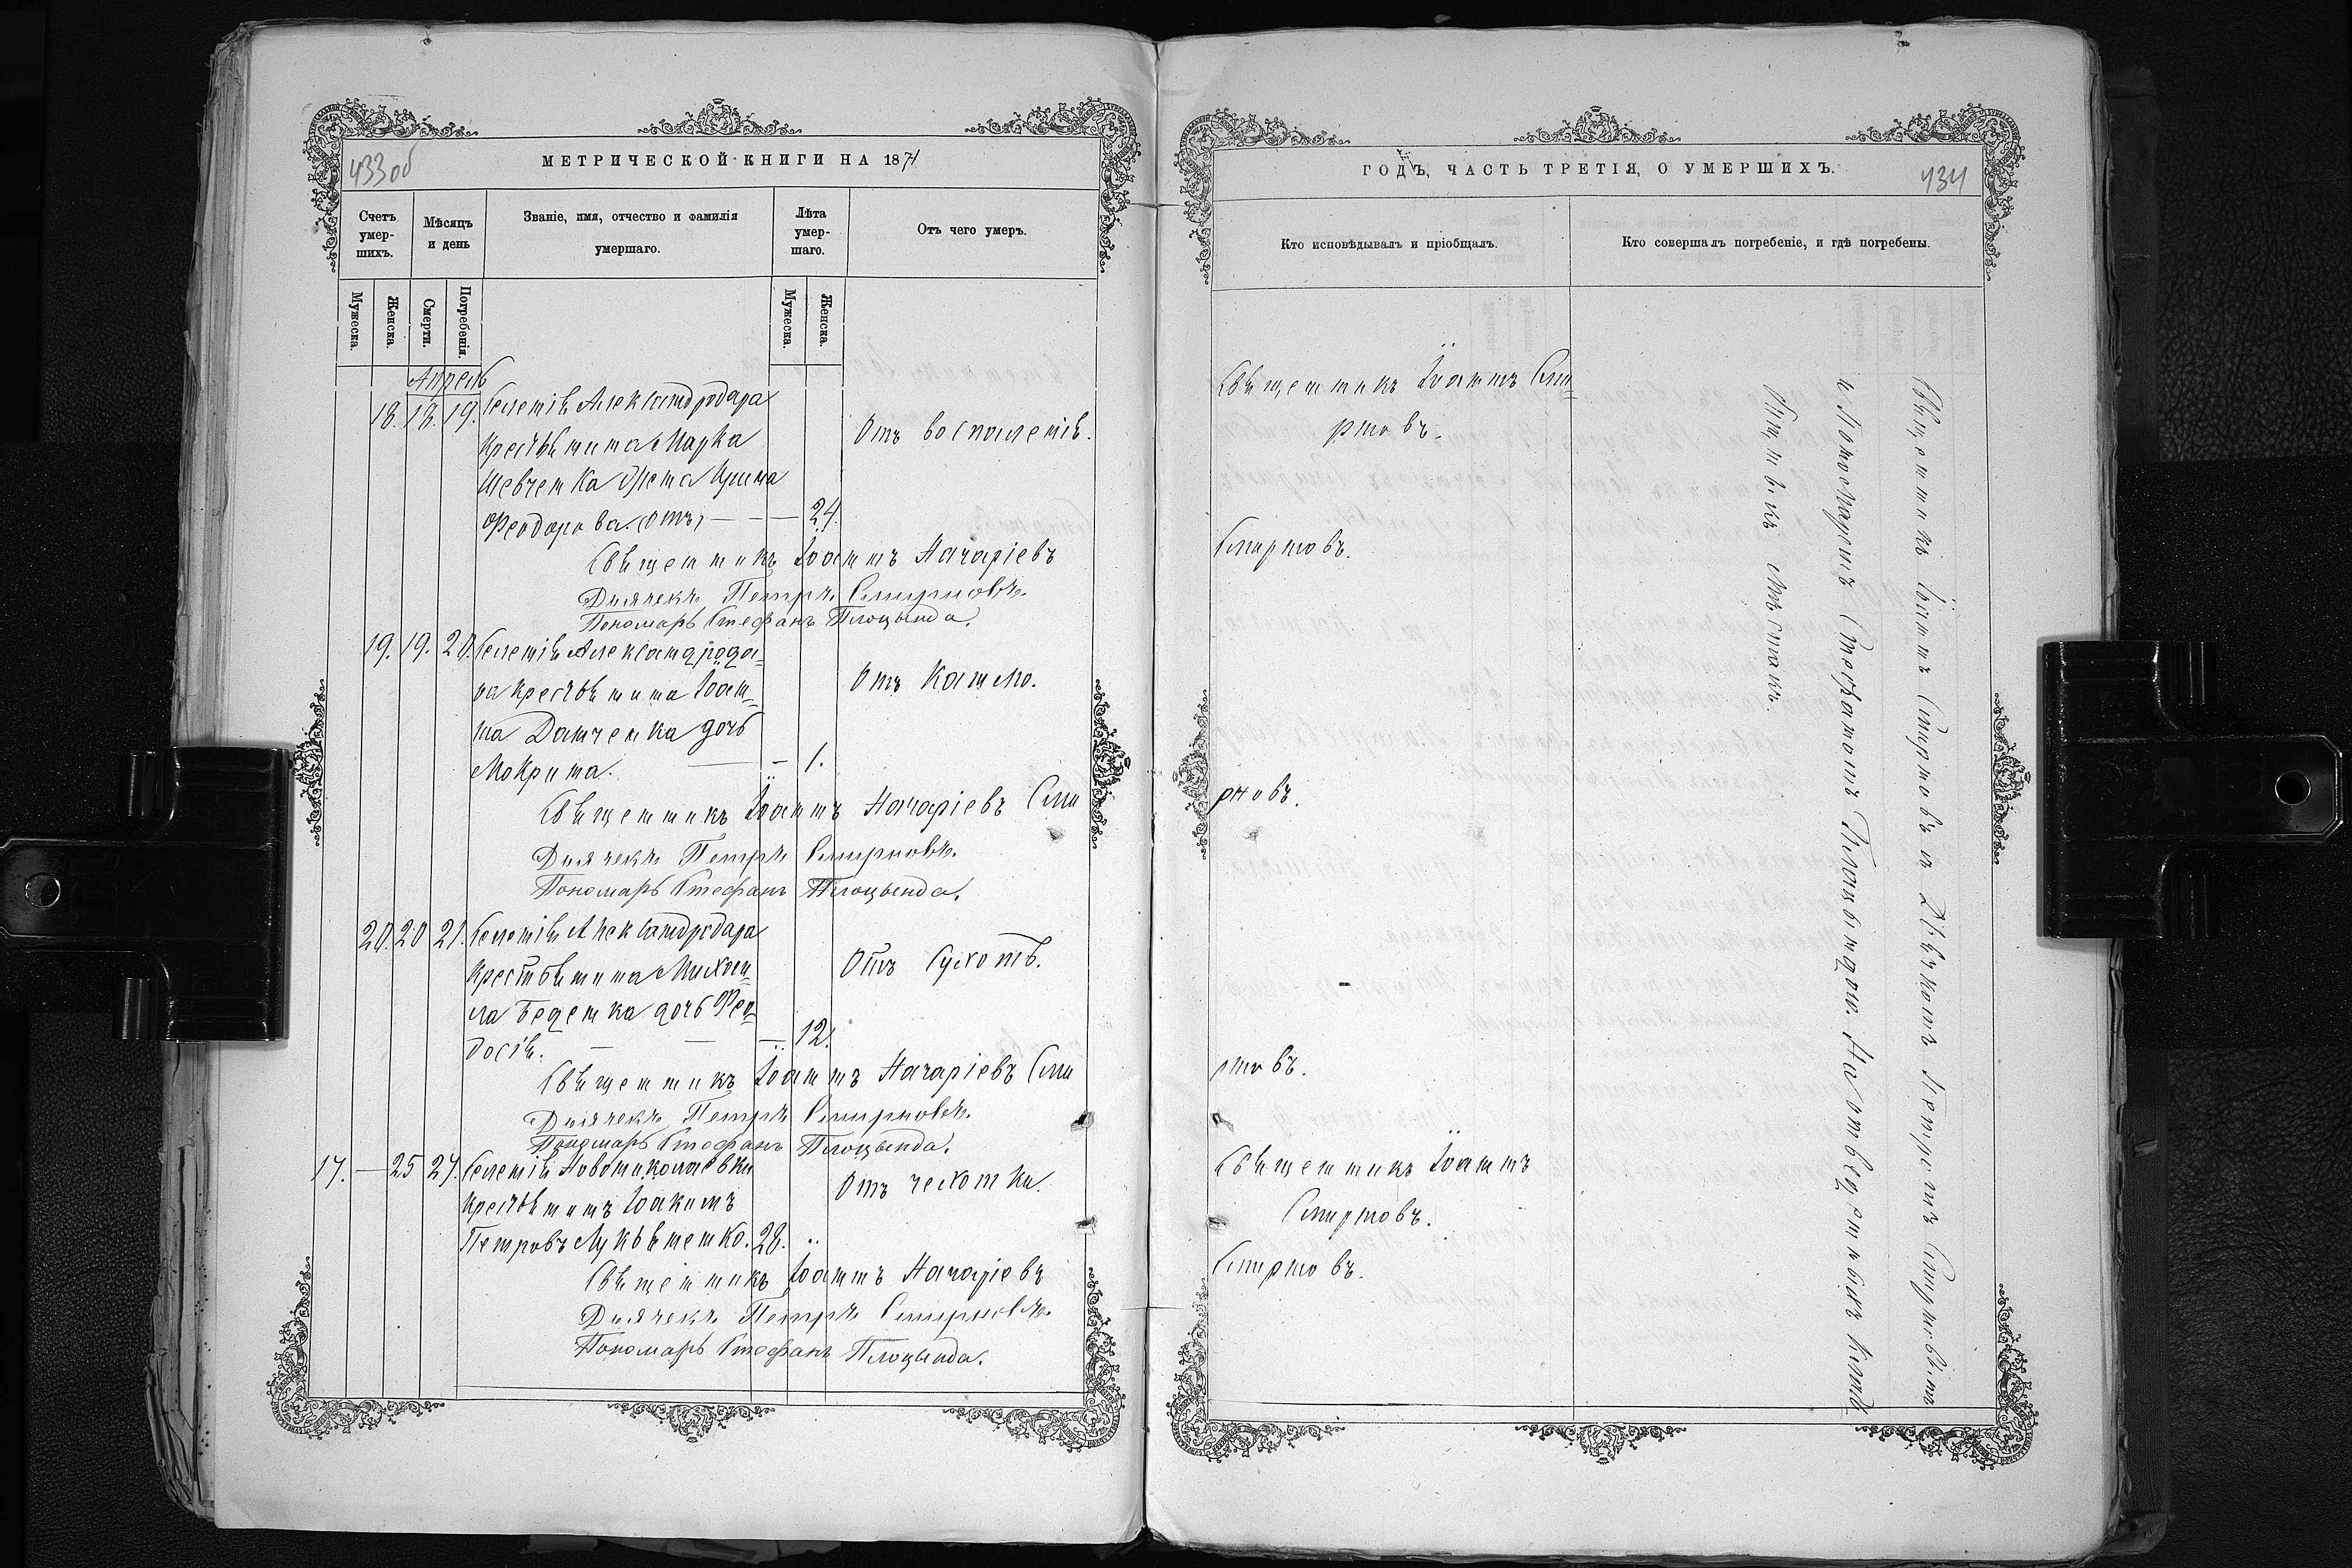 433об
МЕТРИЧЕСКОЙ КНИГИ НА 1871
Счетъ умер-шихъ.
Мѣсяцъ и день
Званіе, имя, отчество и фамилія умершаго.
Лѣта умер-шаго.
Отъ чего умеръ.
Мужеска.
Женска.
Смерти.
Погребенія.
Мужеска.
Женска.
Апрель
18. 18. 19. Селенія Александродара
Крестьянина Марка Отъ воспаленія.
Шевченка жена Ирина
Феодорова. 24.
Священникъ Іоаннъ Назаріевъ
Дьячекъ Петръ Смирновъ.
Пономарь Стефанъ Плоцында.
19. 19. 20. Селенія Александрода=
ра крестьянина Іоан= Отъ кашлю.
на Данченка дочь
Мокрина. — 1.
Священникъ Іоаннъ Назаріевъ Сми
Дьячекъ Петръ Смирновъ.
Пономарь Стефанъ Плоцында.
20. 20 21. Селенія Александродара
Крестьянина Михаи= Отъ сухотъ.
ла Беденка дочь Фео=
досія. — — — 12.
Священникъ Іоаннъ Назаріевъ Сми
Дьячекъ Петръ Смирновъ.
Пономарь Стефанъ Плоцында.
17. — 25 27. Селенія Новониколаевки
Крестьянинъ Іоакимъ Отъ чехотки.
Петровъ Лукьяненко. 28. "
Священникъ Іоаннъ Назаріевъ
Дьячекъ Петръ Смирновъ.
Пономарь Стефанъ Плоцында.
ГОДЪ, ЧАСТЬ ТРЕТІЯ, О УМЕРШИХЪ.
434
Кто исповѣдывалъ и пріобщалъ.
Кто совершалъ погребеніе, и гдѣ погребены.
Священникъ Іоаннъ Сми=
рновъ.
Смирновъ.
рновъ.
рновъ.
Священникъ Іоаннъ
Смирновъ.
Смирновъ.
Священникъ Іоаннъ Смирновъ съ Дьячкомъ Петромъ Смирновымъ
и Пономаремъ Стефаномъ Плоцындою. На отведенныхъ